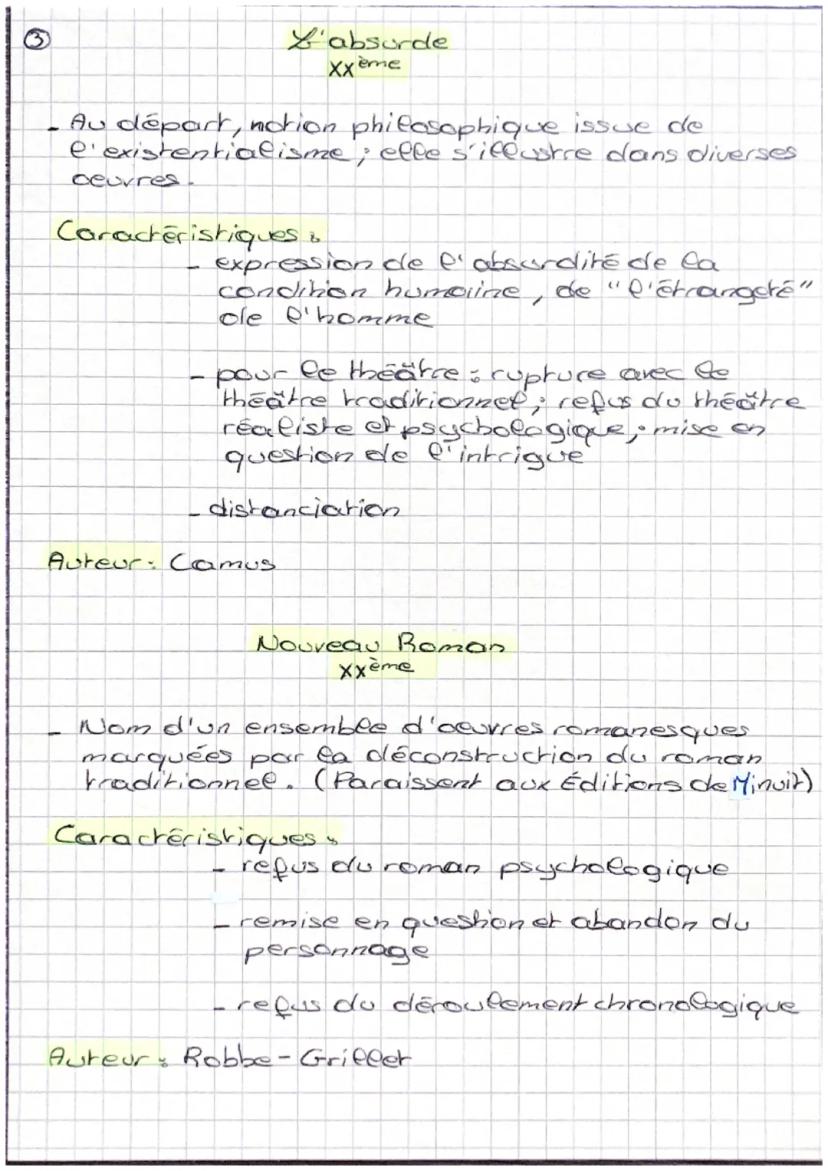 ③
L'absurde
XXème
- Au départ, notion philosophique issue de
l'existentialisme ; elle s'illustre dans diverses
oeuvres.
Caractéristiques :
- expression de l'absurdité de la
condition humaine, de "l'étrangeté"
de l'homme
- pour le théâtre : rupture avec le
théâtre traditionnel ; refus du théâtre
réaliste et psychologique ; mise en
question de l'intrigue
- distanciation
Auteur : Camus
Nouveau Roman
XXème
- Nom d'un ensemble d'oeuvres romanesques
marquées par la déconstruction du roman
traditionnel. (Paraissent aux Éditions de Minuit)
Caractéristiques :
- refus du roman psychologique
- remise en question et abandon du
personnage
- refus du déroulement chronologique
Auteur : Robbe-Grillet